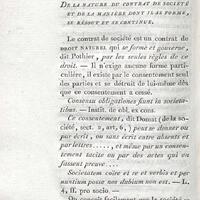 DE LA NATURE DU CONTRAT DE SOCIÉTÉ
ET DE LA MANIÈRE DONT IL SE FORME,
SE RÉSOUT ET SE CONTINUE.
Le contrat de société est un contrat de
DROIT NATUREL qui se forme et gouverne,
dit Pothier, par les seules règles de ce
droit. — Il n'exige aucune forme parti-
culière, il existe par le consentement seul
des parties et se détruit de lui-même dès
que ce consentement a cessé.
Consensu obligationes fiunt in societa-
tibus. — Instit. de obl. ex cons.
Ce consentement, dit Domat (de la so-
ciété, sect. 2, art, 6,) peut se donner ou
par écrit, ou sans écrit entre absents et
par lettres....., et même par un consen-
tement tacite ou par des actes qui en
fassent preuve....
Societatem coire et re et verbis et per
nuntium posse nos dubium non est. — L.
4, ff. pro socio. —
On connoît facilement que la société